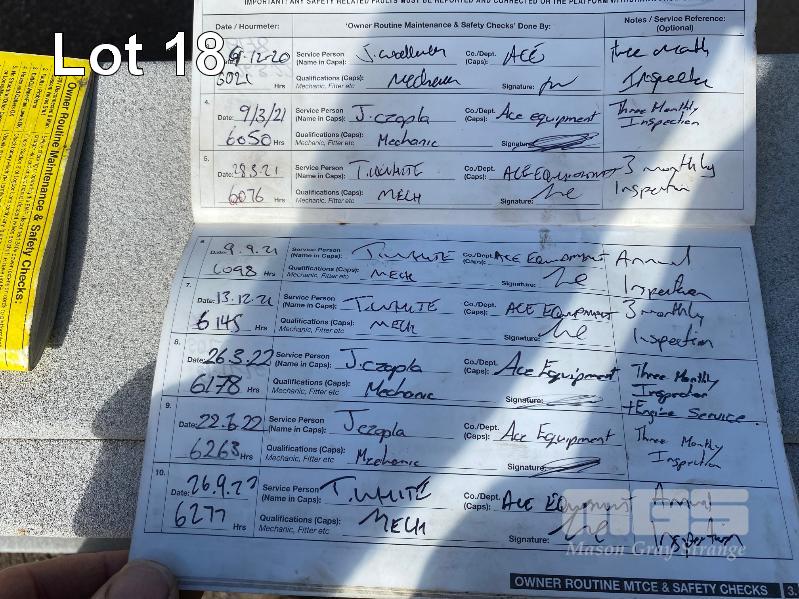 IMPORTANT! ANY SAFETY RELATED FAULTS MUST BE REPORTED AND CORRECTED OR THE PLATFORM
Lot 18
Date / Hourmeter: 'Owner Routine Maintenance & Safety Checks' Done By: Notes / Service Reference:
(Optional)
9.12.20 Service Person (Name in Caps): Co./Dept. (Caps): ACE three month
6021 Hrs Qualifications (Caps): Mechanic, Fitter etc Signature:
4.
Date: 9/3/21 Service Person (Name in Caps): J.czapla Co./Dept. (Caps): Ace equipment Three Monthly
6050 Hrs Qualifications (Caps): Mechanic, Fitter etc Mechanic Signature: Inspection
5.
Service Person (Name in Caps): T.WHITE Co./Dept. (Caps): ACE EQUIPMENT 3 monthly
6076 Hrs Qualifications (Caps): Mechanic, Fitter etc MECH Signature: Inspection
Date: 9.9.21 Service Person (Name in Caps): T.WHITE Co./Dept. (Caps): ACE EQUIPMENT Annual
6098 Hrs Qualifications (Caps): Mechanic, Fitter etc MECH Signature: Inspection
7.
Date: 13.12.21 Service Person (Name in Caps): T.WHITE Co./Dept. (Caps): ACE EQUIPMENT 3 monthly
6145 Hrs Qualifications (Caps): Mechanic, Fitter etc MECH Signature: Inspection
8.
Date: 26.3.22 Service Person (Name in Caps): J.czapla Co./Dept. (Caps): Ace Equipment Three Monthly
6178 Hrs Qualifications (Caps): Mechanic, Fitter etc Mechanic Signature: Inspection
+Engine Service.
9.
Date: 22.6.22 Service Person (Name in Caps): J czapla Co./Dept. (Caps): Ace Equipment Three Monthly
6263 Hrs Qualifications (Caps): Mechanic, Fitter etc Mechanic Signature: Inspection
10.
Date: 26.9.22 Service Person (Name in Caps): T.WHITE Co./Dept. (Caps): ACE Annual
6277 Hrs Qualifications (Caps): Mechanic, Fitter etc MECH Signature: Inspection
MGS
Mason Gray Strange
OWNER ROUTINE MTCE & SAFETY CHECKS 3.
Owner Routine Maintenance & Safety Checks: